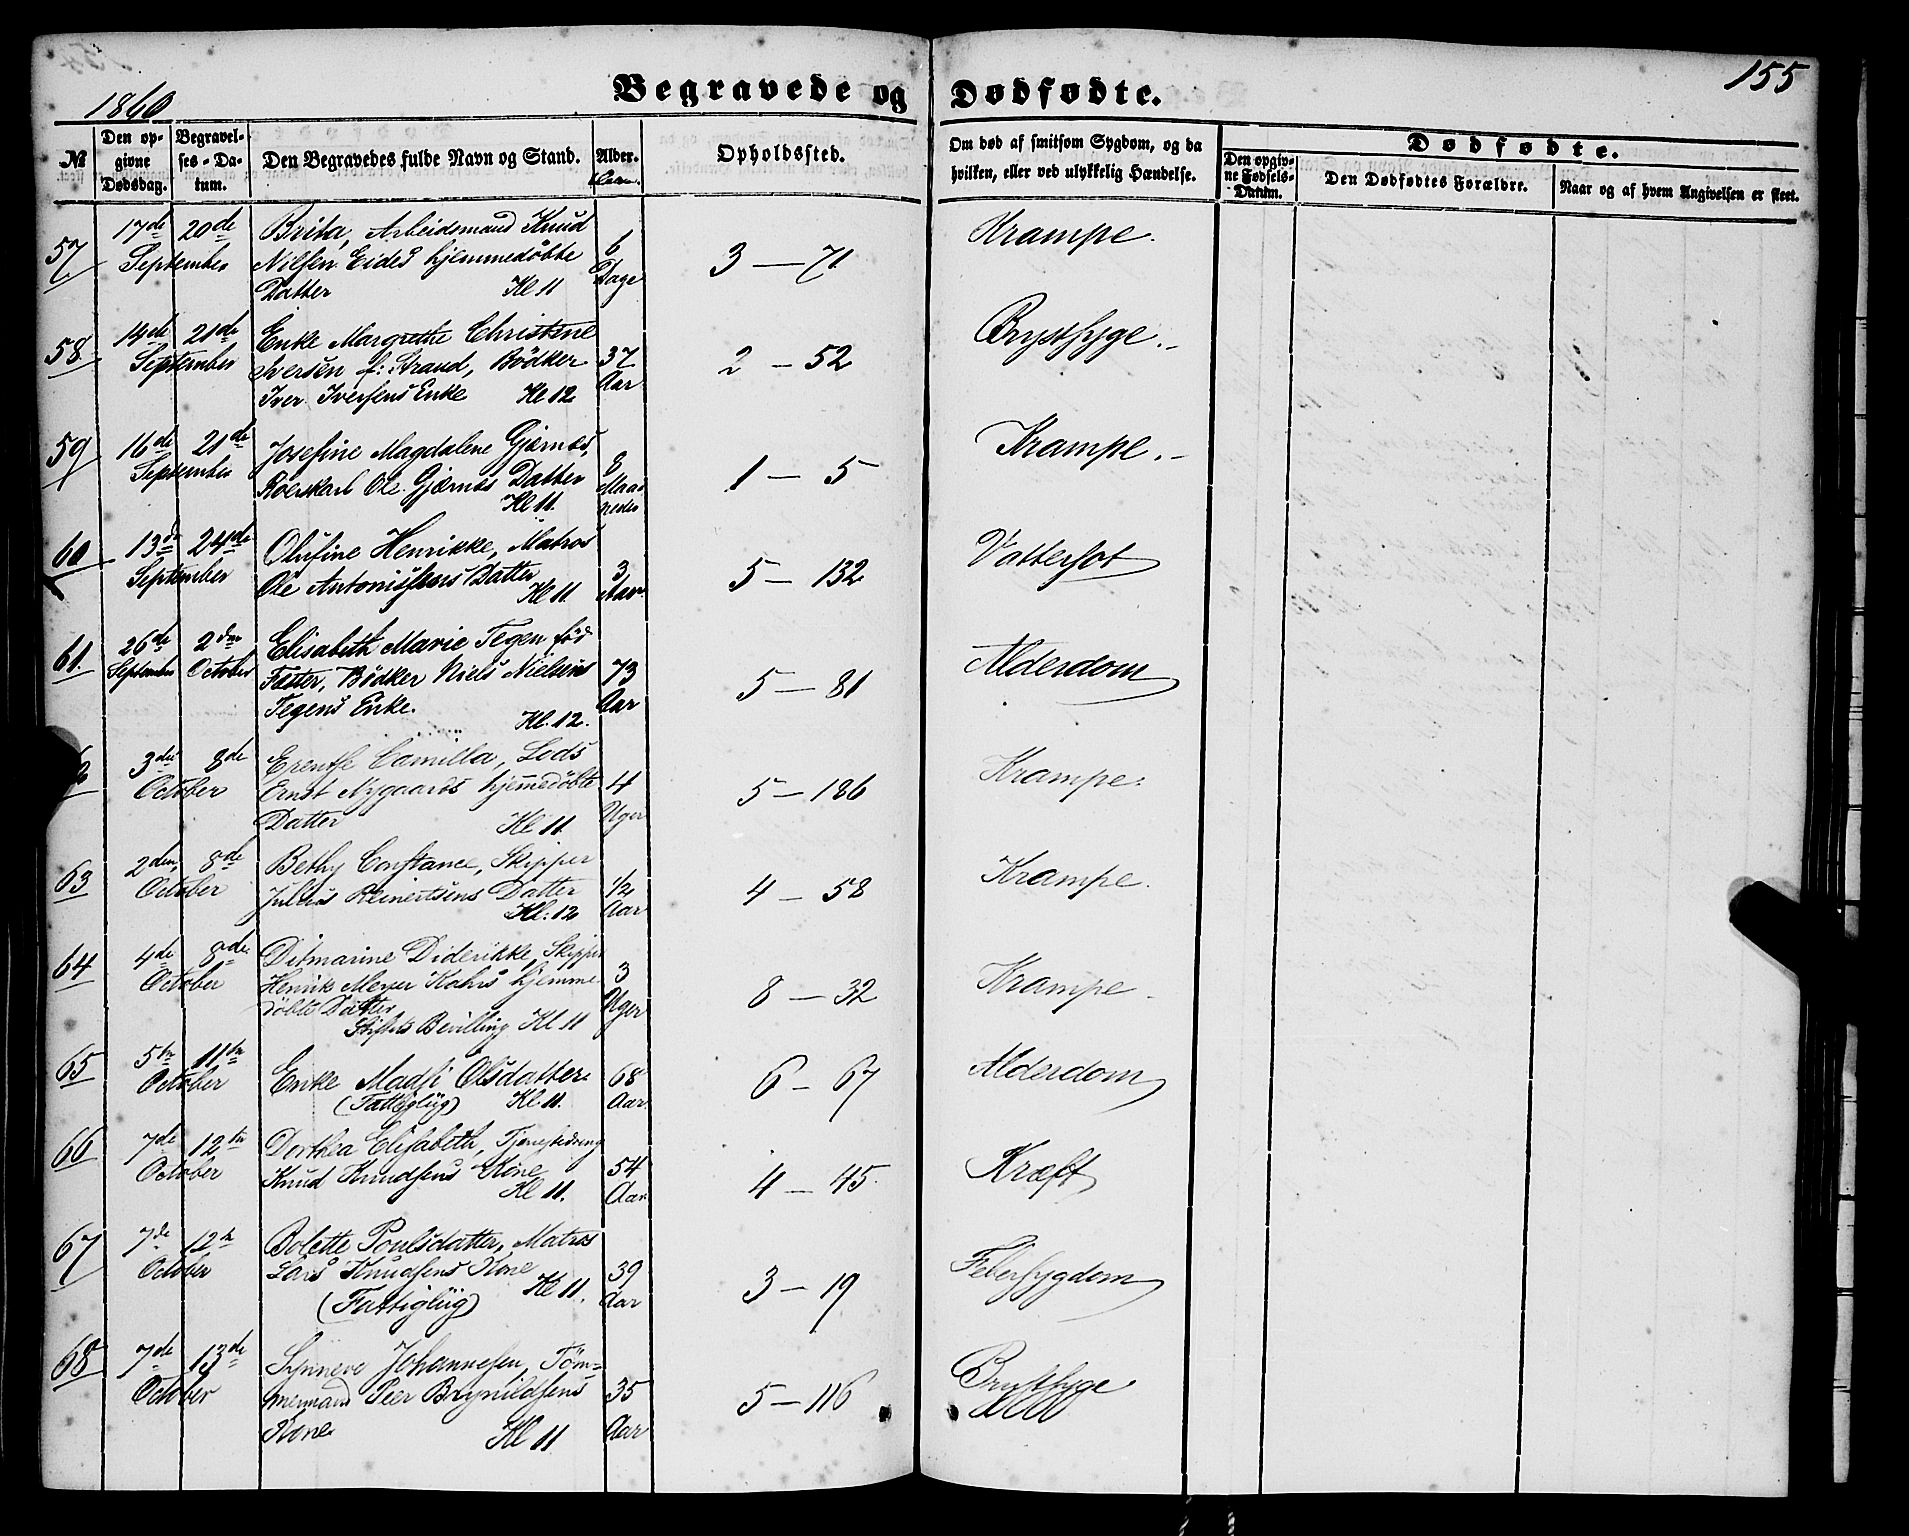 1860
Begravede og Dødfødte.
155
No
Den opgivne Dødsdag.
Begravelses-Datum.
Den Begravedes fulde Navn og Stand.
Alder.
Opholdssted.
Om død af smitsom Sygdom, og da hvilken, eller ved ulykkelig Hændelse.
Dødfødte.
Den opgivne Fødsels-Datum.
Den Dødfødtes Forældre.
Naar og af hvem Angivelsen er skeet.
57 17de 20de September
Brita, Arbeidsmand Knud
Nilsen Eides hjemmedøbte
Datter Kl 11
6 Dage
3 — 71
Krampe.
58 14de 21de September
Enke Margrethe Christine
Iversen f: Strand, Bödker
Iver Iversens Enke Kl 12
37 Aar
2 — 52
Brystsyge.
59 16de 21de September
Josefine Magdalene Gjærnes,
Roerskarl Ole Gjærnes Datter
Kl 11.
8 Maaneder
1 — 5
Krampe.
60 13de 24de September
Olufine Henrikke, Matros
Ole Antonisens Datter
Kl 11.
3 Aar.
5 — 132
Vattersot
61. 26de September 2den October
Elisabeth Marie Tegen fød
Faster, Bödker Niels Nielsens
Tegens Enke. Kl. 12.
73 Aar
5 — 81
Alderdom
3die 8de October
Camilla, Lods
Ernst Nygaards hjemmedöbte
Datter Kl 11.
4 Uger
5 — 186
Krampe.
63 2den 8de October
Bethy Constance, Skipper
Julius Reinertsens Datter
Kl: 12
1/2 Aar
4 — 58
Krampe.
64 4de 8de October
Ditmarine Diderikke, Skipper
Henrik Meyer Kahrs hjemme
döbte Datter
Stifts Bevilling Kl 11
3 Uger
8 — 32
Krampe
65 5te 11te October
Enke Madsi Olsdatter
(Fattiglüg) Kl 11.
68 Aar.
6 — 67
Alderdom
66 7de 12te October
Dorthea Elisabeth, Tjenestedreng
Knud Knudsens Kone
Kl 11.
54 Aar
4 — 45.
Kræft
67 7de 12te October
Bolette Poulsdatter, Matros
Lars Knudsens Kone
Kl 11.
(Fattiglüg)
39 Aar
3 — 19
Febersygdom
68 7de 13de October
Synneve Johannesen, Töm-
mermand Peer Brynildsens
Kone Kl 11
35 Aar
5 — 116
Brystsyge